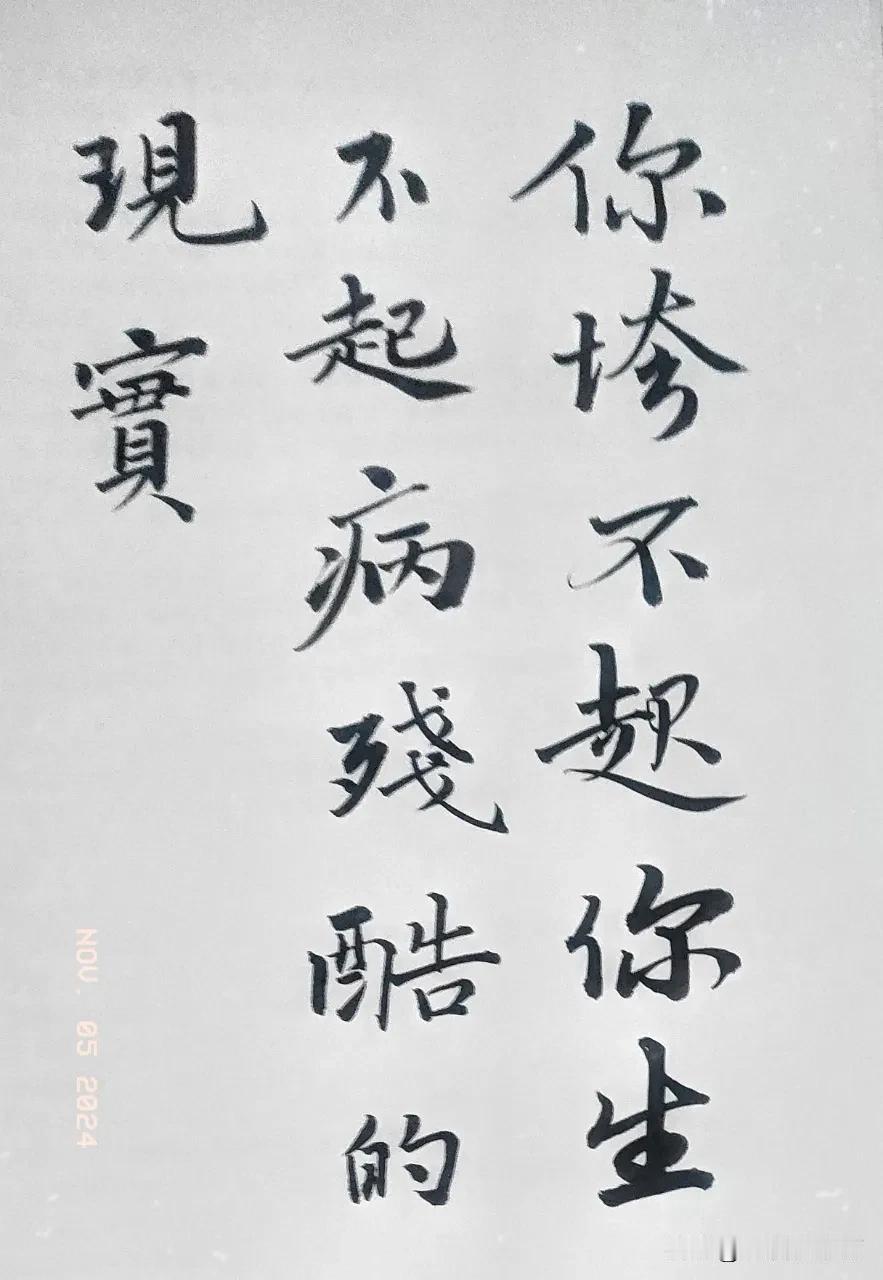 你垮不起你生
不起病殘酷的
現實
NOV. 05 2024